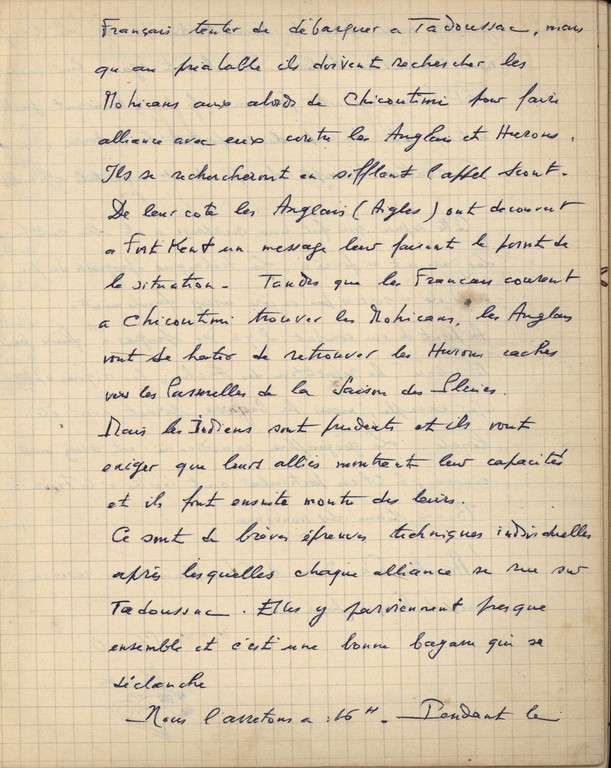 Français tenter de débarquer a Tadoussac, mais
qu au préalable ils doivent rechercher les
Mohicans aux abords de Chicoutimi pour faire
alliance avec eux contre les Anglais et Hurons.
Ils se rechercheront en sifflant l'appel scout.
De leur coté les Anglais (Aigles) ont decouvert
a Fort Kent un message leur faisant le point de
la situation - Tandis que les Francais courent
a Chicoutimi trouver les Mohicans, les Anglais
vont se hater de retrouver les Hurons cachés
vers les Passerelles de la Saison des Pluies.
Mais les Indiens sont prudents et ils vont
exiger que leurs alliés montrent leur capacités
et ils font ensuite montre des leurs.
Ce sont de brèves épreuves techniques individuelles
après lesquelles chaque alliance se rue sur
Tadoussac. Elles y parviennent presque
ensemble et c'est une bonne bagarre qui se
déclanche
Nous l'arretons a 16 H - Pendant le